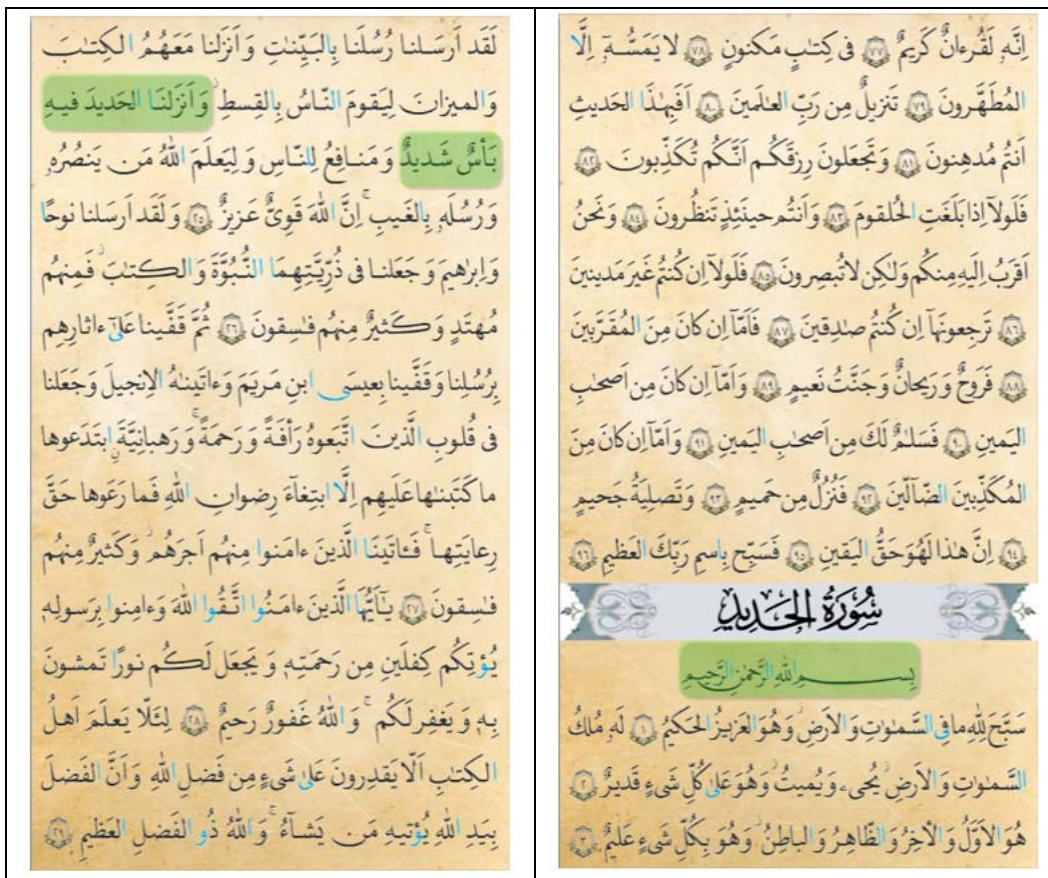 اِنَّهُ لَقُرءانٌ كَريمٌ ﴿٧٧﴾ فى كِتٰبٍ مَكنونٍ ﴿٧٨﴾ لا يَمَسُّهُ اِلَّا
المُطَهَّرونَ ﴿٧٩﴾ تَنزيلٌ مِن رَبِّ العٰلَمينَ ﴿٨٠﴾ اَفَبِهٰذَا الحَديثِ
اَنتُم مُدهِنونَ ﴿٨١﴾ وَ تَجعَلونَ رِزقَكُم اَنَّكُم تُكَذِّبونَ ﴿٨٢﴾
فَلَولآ اِذا بَلَغَتِ الحُلقومَ ﴿٨٣﴾ وَ اَنتُم حينَئِذٍ تَنظُرونَ ﴿٨٤﴾ وَ نَحنُ
اَقرَبُ اِلَيهِ مِنكُم وَ لٰكِن لا تُبصِرونَ ﴿٨٥﴾ فَلَولآ اِن كُنتُم غَيرَ مَدينينَ
﴿٨٦﴾ تَرجِعونَهآ اِن كُنتُم صٰدِقينَ ﴿٨٧﴾ فَاَمّآ اِن كانَ مِنَ المُقَرَّبينَ
﴿٨٨﴾ فَرَوحٌ وَ رَيحانٌ وَ جَنَّتُ نَعيمٍ ﴿٨٩﴾ وَ اَمّآ اِن كانَ مِن اَصحٰبِ
اليَمينِ ﴿٩٠﴾ فَسَلٰمٌ لَكَ مِن اَصحٰبِ اليَمينِ ﴿٩١﴾ وَ اَمّآ اِن كانَ مِنَ
المُكَذِّبينَ الضّآلّينَ ﴿٩٢﴾ فَنُزُلٌ مِن حَميمٍ ﴿٩٣﴾ وَ تَصلِيَةُ جَحيمٍ
﴿٩٤﴾ اِنَّ هٰذا لَهُوَ حَقُّ اليَقينِ ﴿٩٥﴾ فَسَبِّح بِاسمِ رَبِّكَ العَظيمِ ﴿٩٦﴾
سُورَةُ الحَدِيدِ
بِسمِ اللّٰهِ الرَّحمٰنِ الرَّحيمِ
سَبَّحَ لِلّٰهِ ما فِى السَّمٰوٰتِ وَ الاَرضِ وَ هُوَ العَزيزُ الحَكيمُ ﴿١﴾ لَهُ مُلكُ
السَّمٰوٰتِ وَ الاَرضِ يُحىۦ وَ يُميتُ وَ هُوَ عَلىٰ كُلِّ شَىءٍ قَديرٌ ﴿٢﴾
هُوَ الاَوَّلُ وَ الأخِرُ وَ الظّاهِرُ وَ الباطِنُ وَ هُوَ بِكُلِّ شَىءٍ عَليمٌ ﴿٣﴾
لَقَد اَرسَلنا رُسُلَنا بِالبَيِّنٰتِ وَ اَنزَلنا مَعَهُمُ الكِتٰبَ
وَ الميزانَ لِيَقومَ النّاسُ بِالقِسطِ وَ اَنزَلنَا الحَديدَ فيهِ
بَأسٌ شَديدٌ وَ مَنافِعُ لِلنّاسِ وَ لِيَعلَمَ اللّٰهُ مَن يَنصُرُهُ
وَ رُسُلَهُ بِالغَيبِ ۚ اِنَّ اللّٰهَ قَوِىٌّ عَزيزٌ ﴿٢٥﴾ وَ لَقَد اَرسَلنا نوحًا
وَ اِبرٰهيمَ وَ جَعَلنا فى ذُرِّيَّتِهِمَا النُّبُوَّةَ وَ الكِتٰبَ ۖ فَمِنهُم
مُهتَدٍ وَ كَثيرٌ مِنهُم فٰسِقونَ ﴿٢٦﴾ ثُمَّ قَفَّينا عَلىٰٓ ءاثارِهِم
بِرُسُلِنا وَ قَفَّينا بِعيسَى ابنِ مَريَمَ وَ ءاتَينٰهُ الاِنجيلَ وَ جَعَلنا
فى قُلوبِ الَّذينَ اتَّبَعوهُ رَأفَةً وَ رَحمَةً ۚ وَ رَهبانِيَّةً ابتَدَعوها
ما كَتَبنٰها عَلَيهِم اِلَّا ابتِغآءَ رِضوانِ اللّٰهِ فَما رَعَوها حَقَّ
رِعايَتِها ۖ فَـٔاتَينَا الَّذينَ ءامَنوا مِنهُم اَجرَهُم ۖ وَ كَثيرٌ مِنهُم
فٰسِقونَ ﴿٢٧﴾ يٰٓاَيُّهَا الَّذينَ ءامَنُوا اتَّقُوا اللّٰهَ وَ ءامِنوا بِرَسولِهِ
يُؤتِكُم كِفلَينِ مِن رَحمَتِهِ وَ يَجعَل لَكُم نورًا تَمشونَ
بِهِ وَ يَغفِر لَكُم ۚ وَ اللّٰهُ غَفورٌ رَحيمٌ ﴿٢٨﴾ لِئَلّا يَعلَمَ اَهلُ
الكِتٰبِ اَلّا يَقدِرونَ عَلىٰ شَىءٍ مِن فَضلِ اللّٰهِ وَ اَنَّ الفَضلَ
بِيَدِ اللّٰهِ يُؤتيهِ مَن يَشآءُ ۚ وَ اللّٰهُ ذُو الفَضلِ العَظيمِ ﴿٢٩﴾